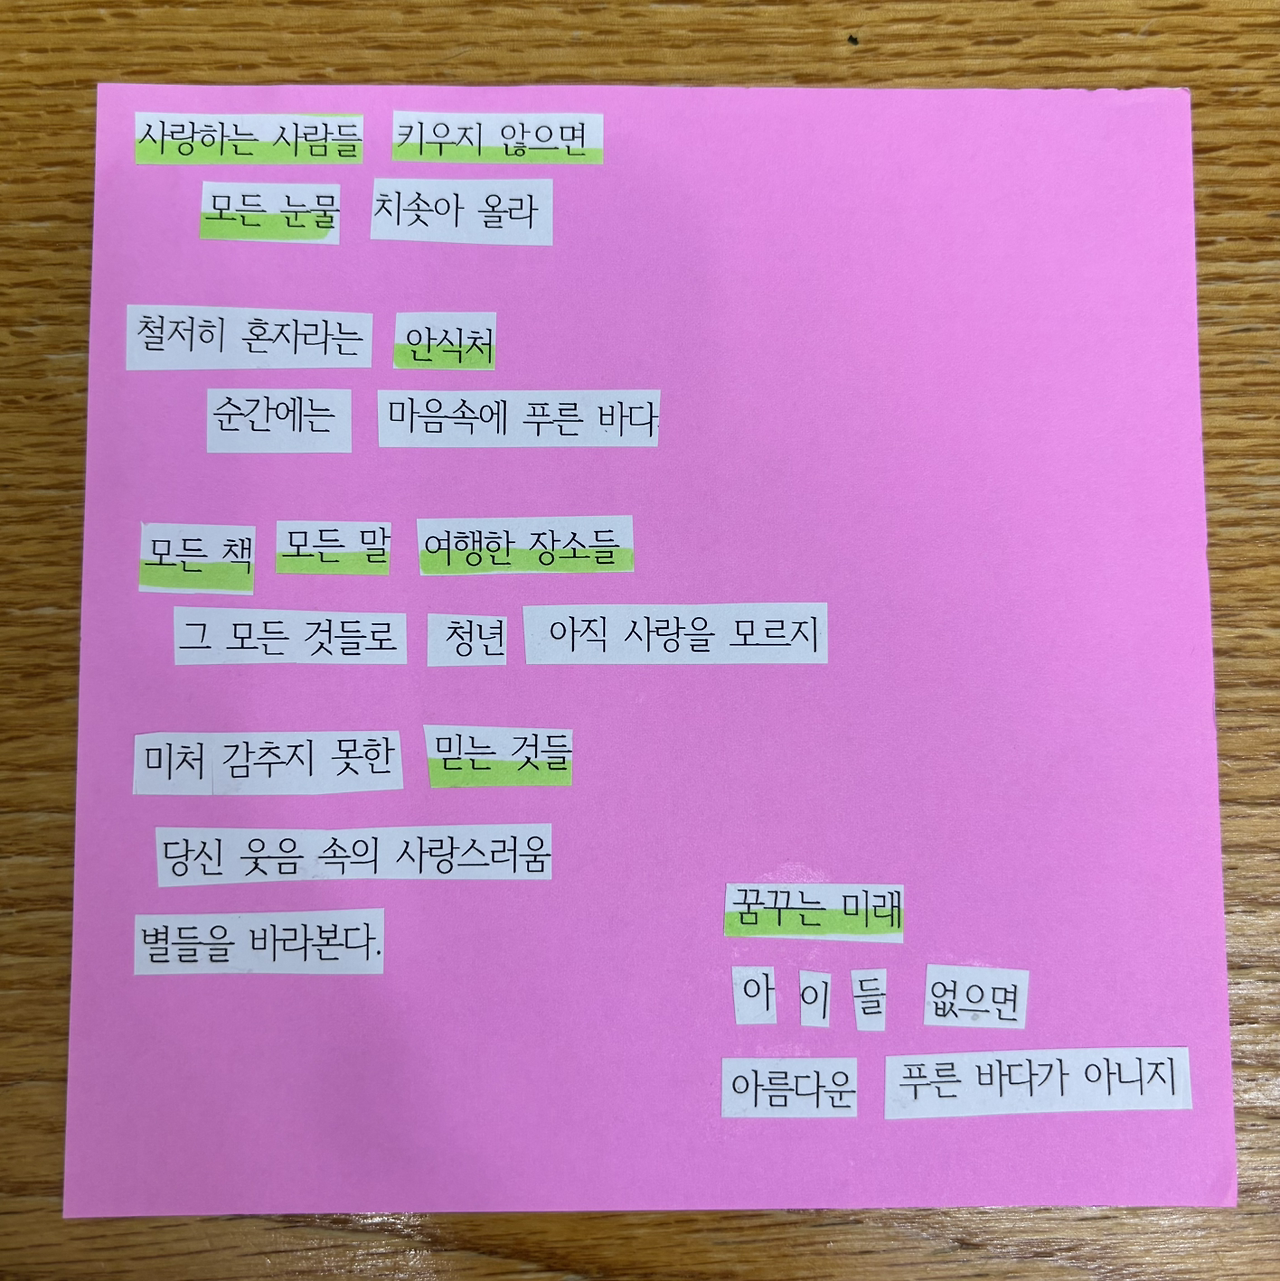 사랑하는 사람들 키우지 않으면
모든 눈물 치솟아 올라
철저히 혼자라는 안식처
순간에는 마음속에 푸른 바다
모든 책 모든 말 여행한 장소들
그 모든 것들로 청년 아직 사랑을 모르지
미처 감추지 못한 믿는 것들
당신 웃음 속의 사랑스러움
별들을 바라본다.
꿈꾸는 미래
아 이 들 없으면
아름다운 푸른 바다가 아니지